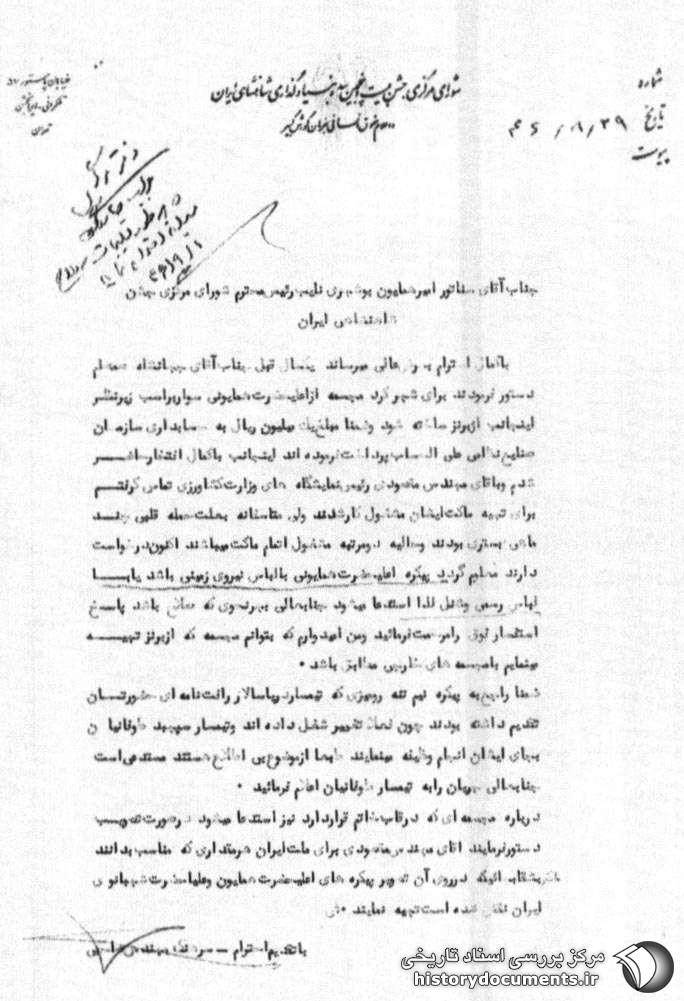 شماره
تاریخ ۴۶ / ۸ / ۲۹
پیوست
شورای مرکزی جشن دوهزار و پانصدمین سال بنیادگذاری شاهنشاهی ایران
تهران
دفتر
جناب آقای سناتور امیرهمایون بوشهری نایب رئیس محترم شورای مرکزی جشن
شاهنشاهی ایران
باکمال احترام به عرض عالی میرساند یکسال قبل جناب آقای جهانشاه صمصام
دستور فرمودند برای شهر کرد مجسمه ازاعلیحضرت همایونی سواربراسب زیرنظر
اینجانب ازبرنز ساخته شود وضمنا مبلغ یک میلیون ریال به حسابداری سازمان
صنایع نظامی علی الحساب پرداخت فرموده اند اینجانب باکمال افتخار
شدم وباآقای مهندس رئیس نمایشگاه های وزارت کشاورزی تماس گرفتم
برای تهیه ماکت ایشان مشغول کارشدند ولی متاسفانه بعلت حمله قلبی چند
ماهی بستری بودند وحالیه دومرتبه مشغول اتمام ماکت میباشند اکنون درخواست
دارند معلوم گردد پیکره اعلیحضرت همایونی بالباس نیروی زمینی باشد یا با
لباس رسمی وشنل لذا استدعا میشود جنابعالی بهرنحوی که صلاح باشد پاسخ
استفسار فوق رامرحمت فرمائید ومن امیدوارم که بتوانم مجسمه که ازبرنز تهیه
مینمایم بامجسمه های خارجی مطابق باشد .
ضمنا راجع به پیکره نیم تنه که تیمساردریاسالار نامه ای حضورتان
تقدیم داشته بودند چون فعلا تغییر شغل داده اند وتیمسار سپهبد طوفانیان
بجای ایشان انجام وظیفه مینمایند ازموضوع بی اطلاع هستند مستدعی است
جنابعالی جریان رابه تیمسار طوفانیان اعلام فرمائید .
درباره مجسمه ای که درقاب خاتم قراردارد نیز استدعا میشود درصورت تصویب
دستورفرمایند آقای مهندس برای ملت ایران هرمقداری که مناسب بدانند
که درروی آن تصویر پیکره های اعلیحضرت همایون وعلیاحضرت شهبانوی
ایران نقش شده است تهیه نمایند
باتقدیم احترام - مهندس
مرکز بررسی اسناد تاریخی
historydocuments.ir